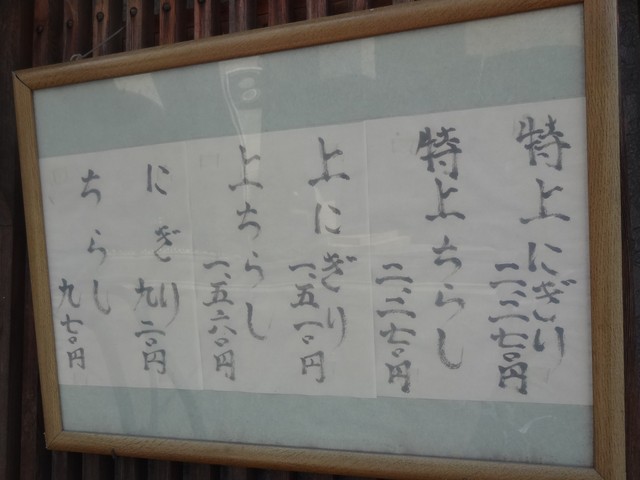 特上にぎり
二、二七〇円
特上ちらし
二、二七〇円
上にぎり
一、五一〇円
上ちらし
一、五六〇円
にぎり
九二〇円
ちらし
九七〇円